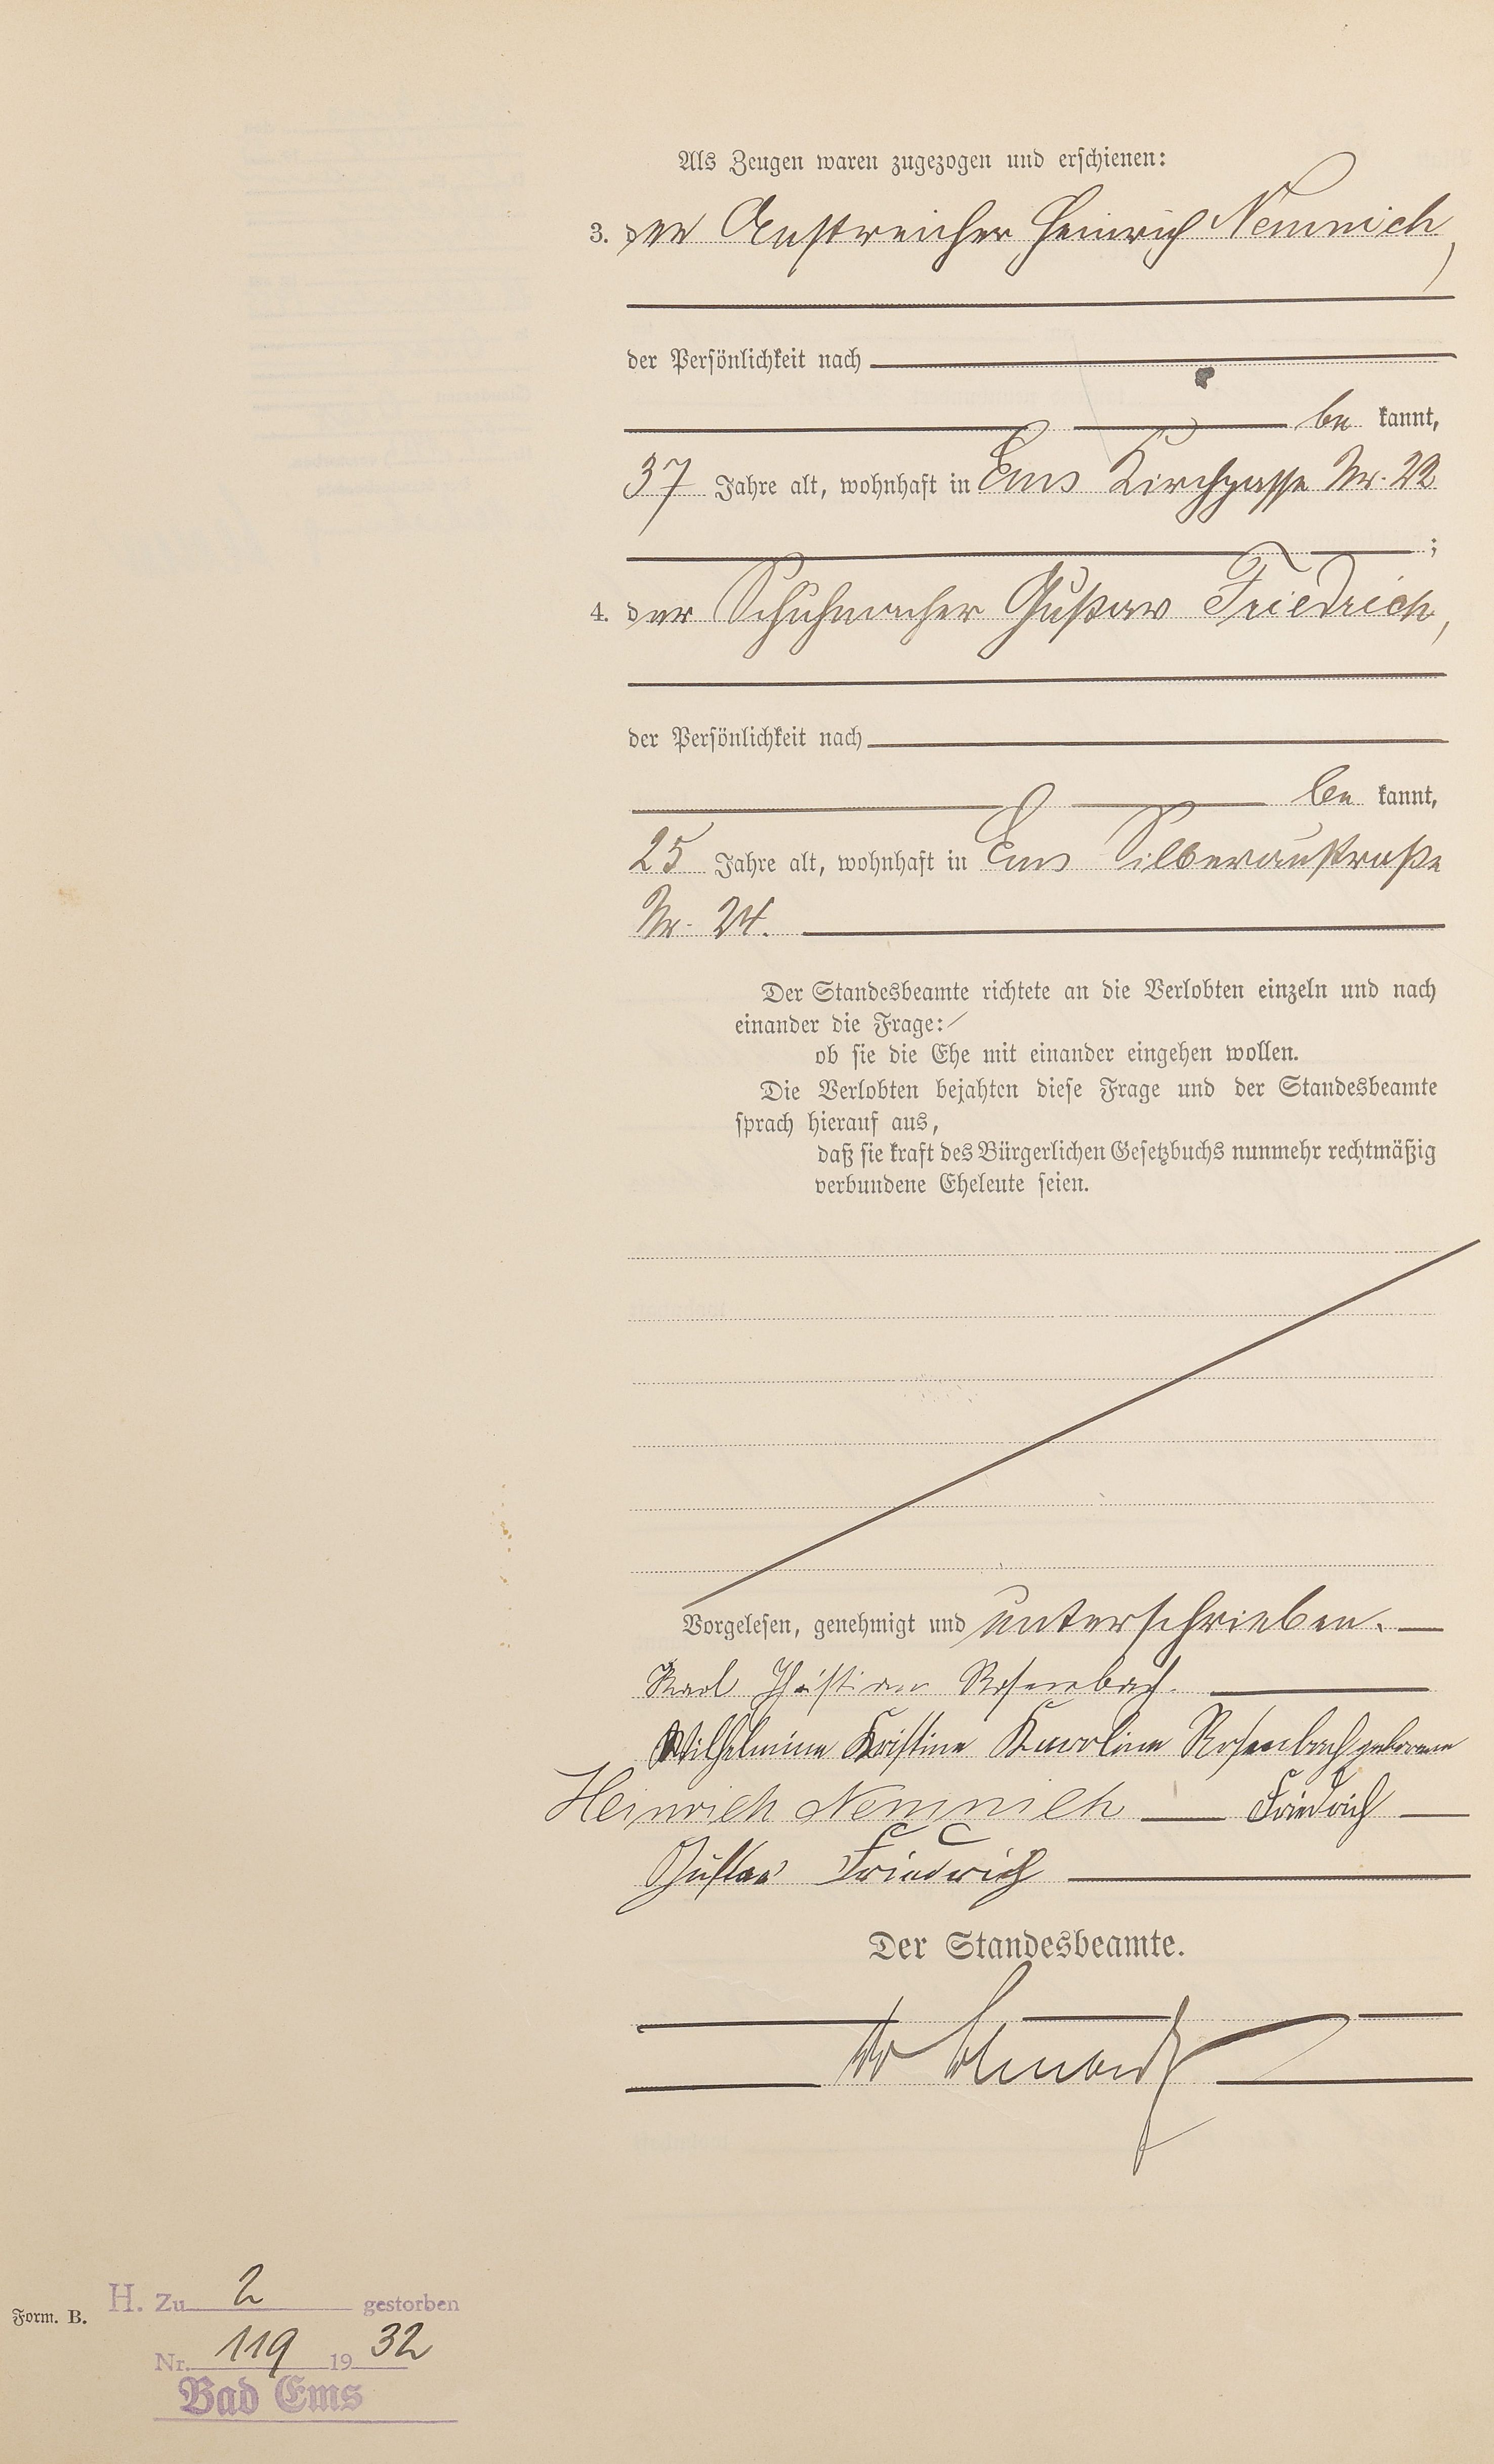 Als Zeugen waren zugezogen und erschienen:
3. der Anstreicher Heinrich Nemnich,
der Persönlichkeit nach
be kannt,
37 Jahre alt, wohnhaft in Ems Kirchgasse Nr. 22
;
4. der Schuhmacher Gustav Friedrich,
der Persönlichkeit nach
be kannt,
25 Jahre alt, wohnhaft in Ems Silberaustraße
Nr. 24.
Der Standesbeamte richtete an die Verlobten einzeln und nach
einander die Frage:
ob sie die Ehe mit einander eingehen wollen.
Die Verlobten bejahten diese Frage und der Standesbeamte
sprach hierauf aus,
daß sie kraft des Bürgerlichen Gesetzbuchs nunmehr rechtmäßig
verbundene Eheleute seien.
Vorgelesen, genehmigt und unterschrieben.
Karl Christian Rosenbach.
Wilhelmine Kristine Karoline Rosenbach geborene
Heinrich Nemnich Friedrich
Gustav Friedrich
Der Standesbeamte.
H. Zu 2 gestorben
Form. B.
Nr. 119 1932
Bad Ems